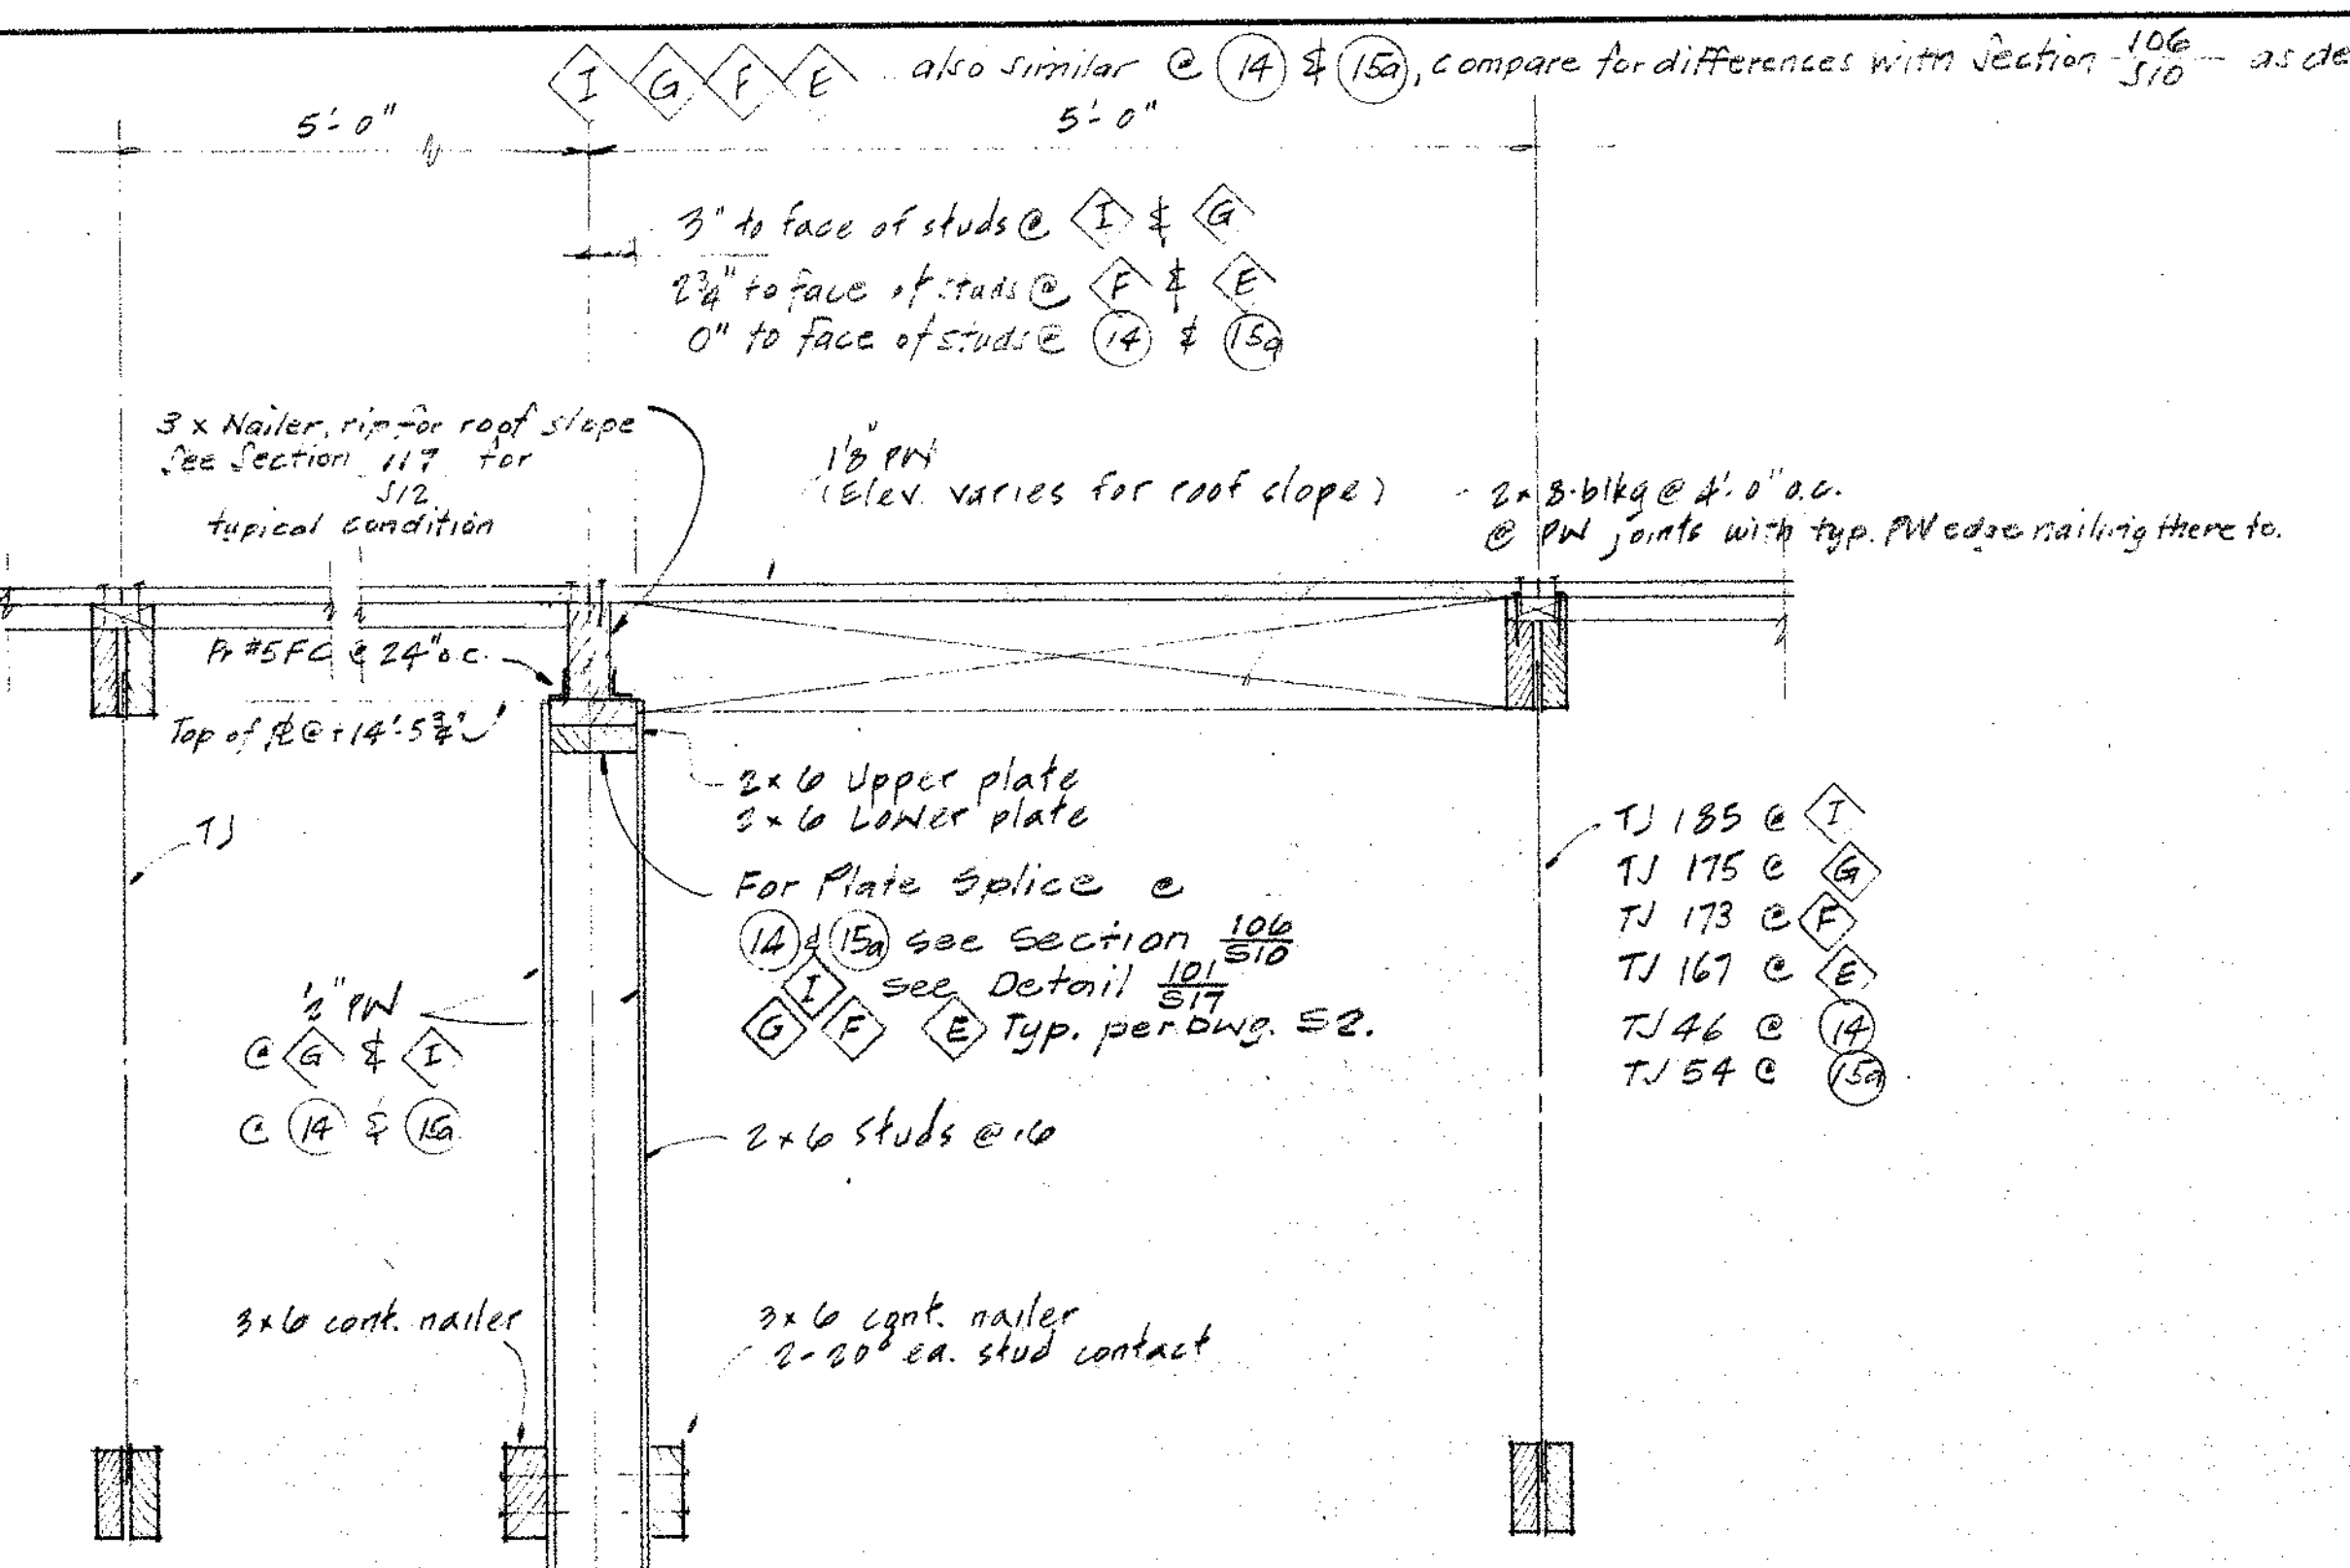 I G F E also similar @ 14 & 15a, compare for differences with Section 106/S10 as de
5'-0"
5'-0"
3" to face of studs @ I & G
2 3/4" to face of studs @ F & E
0" to face of studs @ 14 & 15a
3 x Nailer, rip for roof slope
See Section 117/S12 for
typical condition
1 1/8" PW
(Elev. varies for roof slope)
2x8 blkg @ 4'-0" o.c.
@ PW joints with typ. PW edge nailing there to.
Pr #5 FC @ 24" o.c.
Top of PL @ +14'-5 3/4"
2x6 Upper plate
2x6 Lower plate
TJ
For Plate Splice @
14 & 15a see Section 106/S10
I see Detail 101/S17
G F E Typ. per Dwg. S2.
TJ 185 @ I
TJ 175 @ G
TJ 173 @ F
TJ 167 @ E
TJ 46 @ 14
TJ 54 @ 15a
1/2" PW
@ G & I
@ 14 & 15a
2x6 studs @ 16
3x6 cont. nailer
3x6 cont. nailer
2-20d ea. stud contact